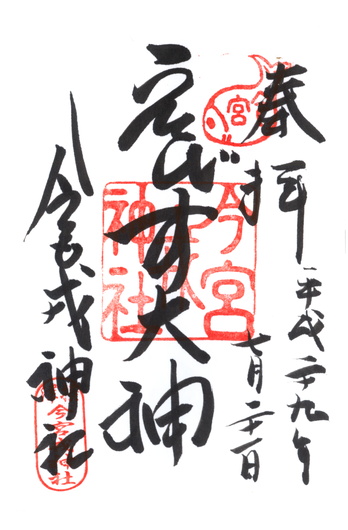 奉拝
平成二十九年
七月二十一日
えびす大神
今宮戎神社
今宮
戎
神社
宮
今宮戎神社